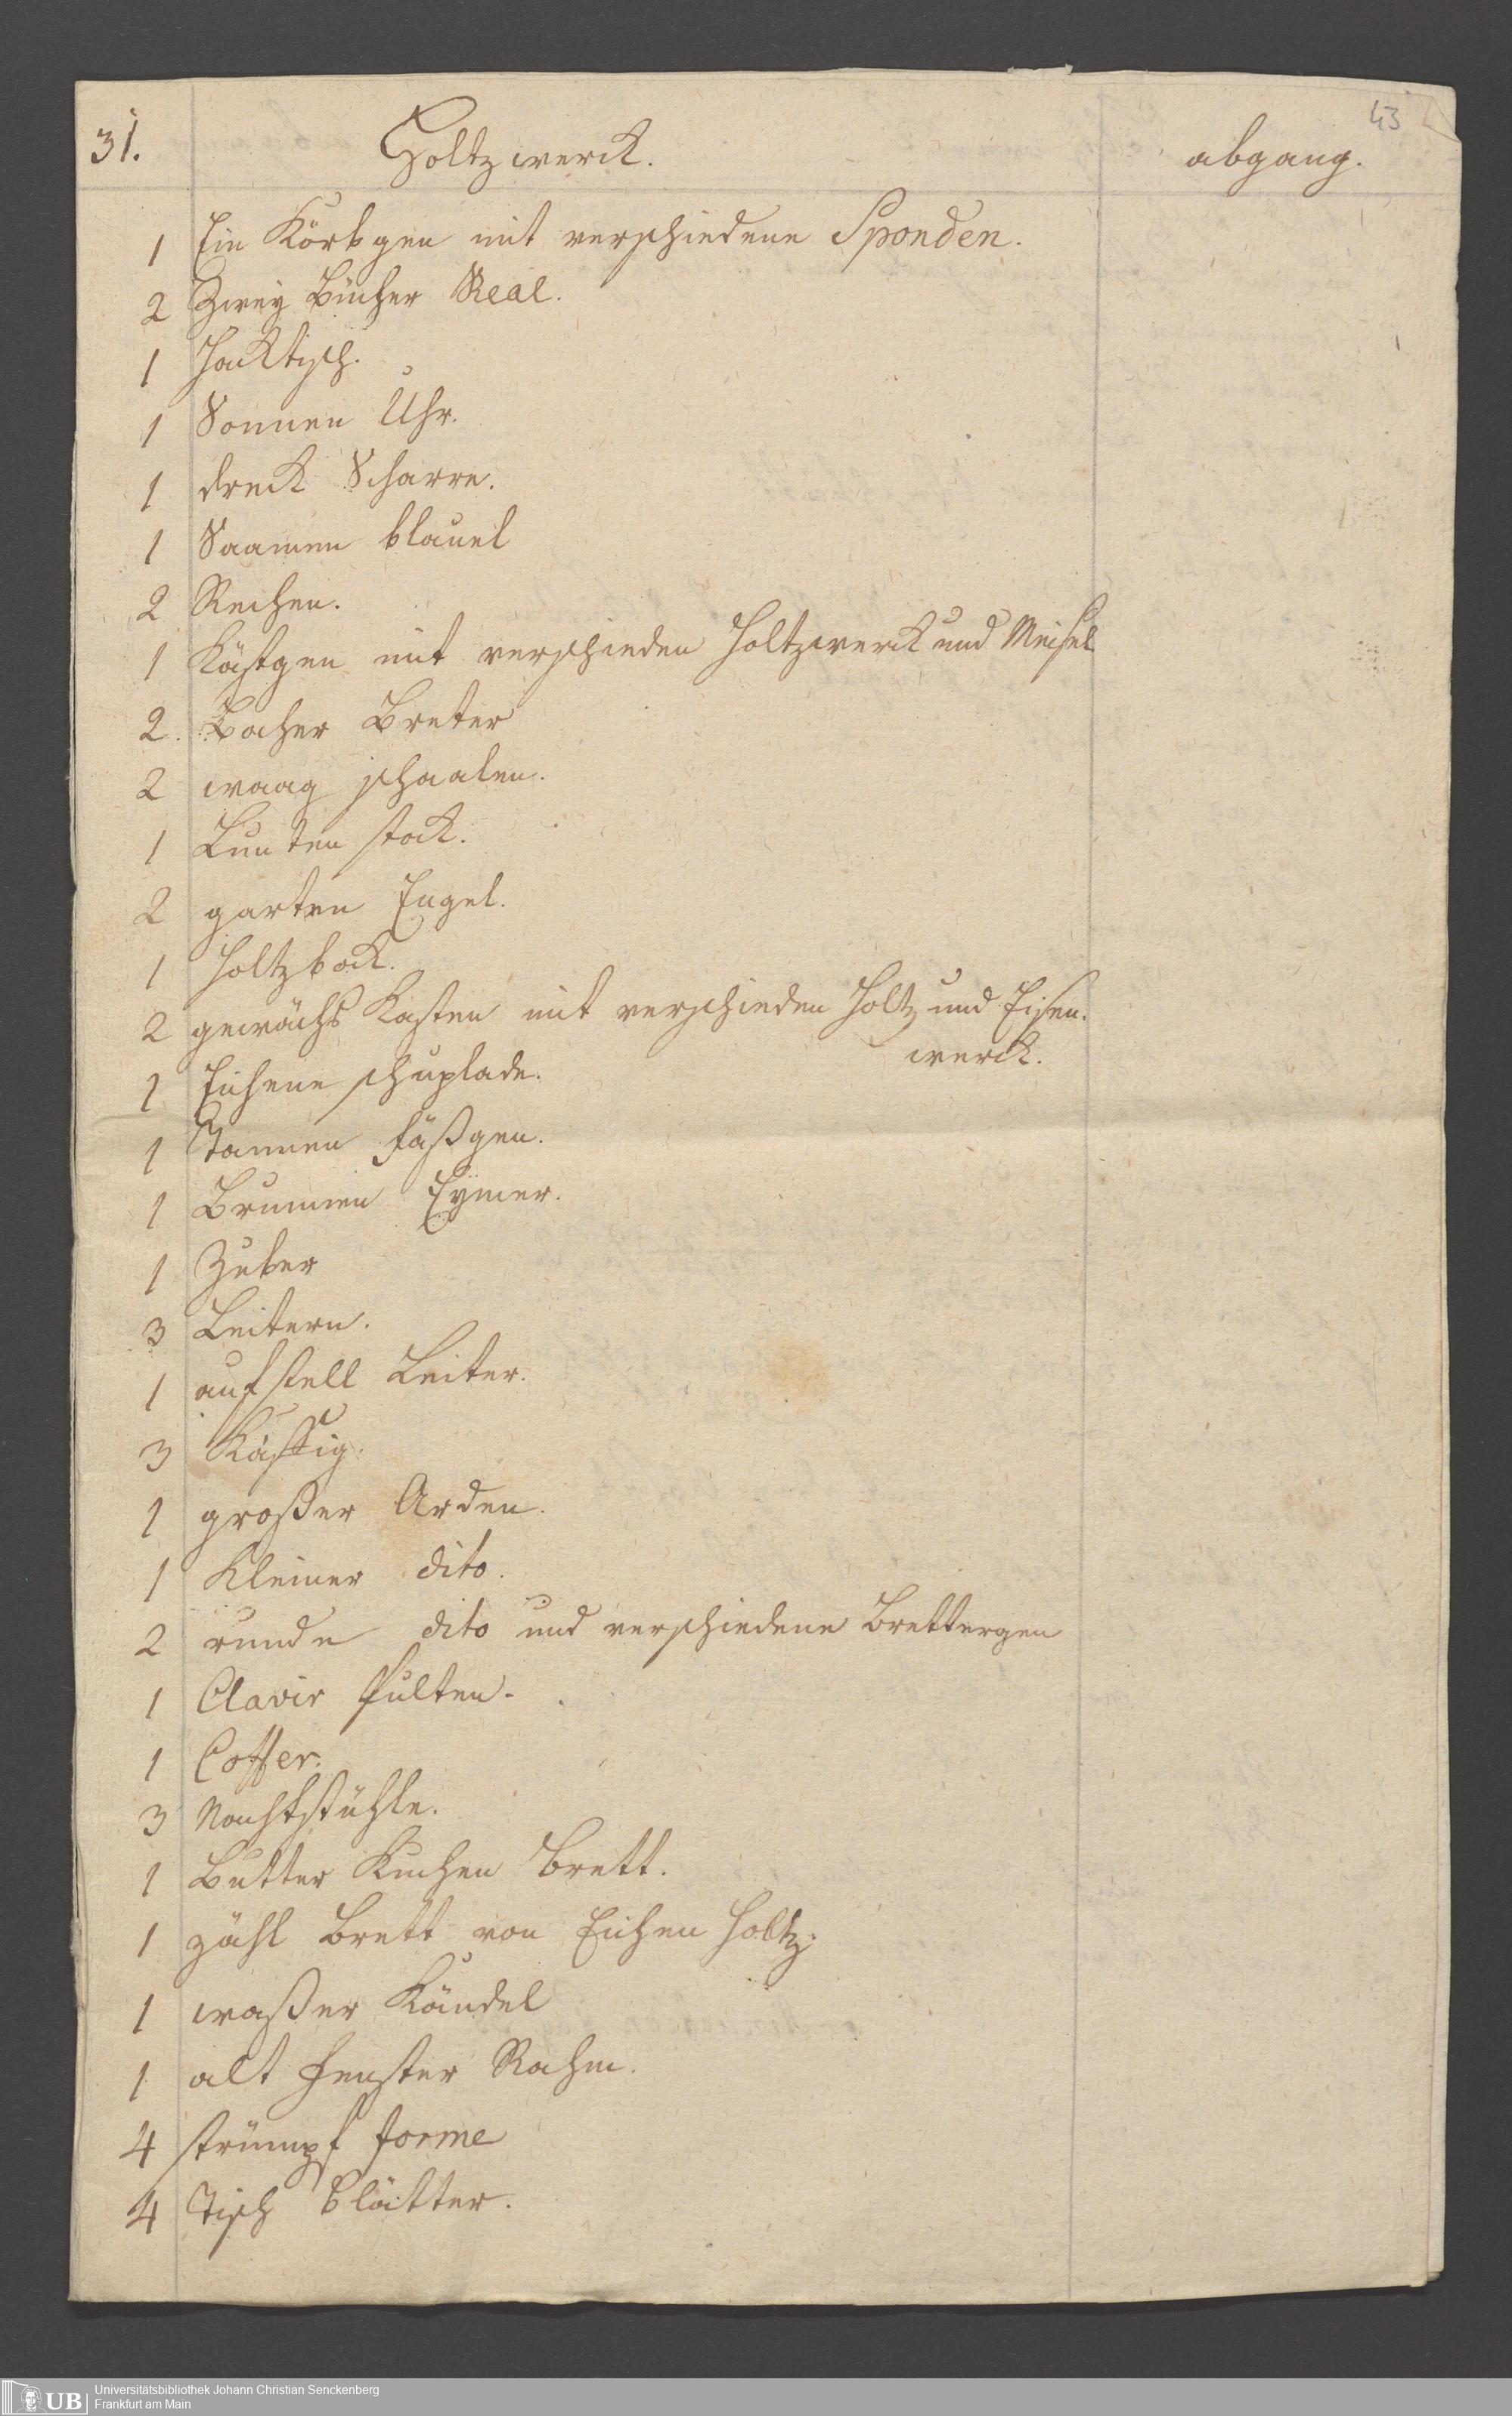 43
31. Holtzwerck. abgang.
1 Ein Körbgen mit verschiedene Sponden.
2 Zwey Bücher Real.
1 Hacktisch.
1 Sonnen Uhr.
1 dreck Scharre.
1 Saamen blauel
2 Rechen.
1 Kästgen mit verschieden Holtzwerck und Meisel
2. Bocher Breter
2 waag schaalen.
1 Lunten stock.
2 garten Engel.
1 Holtzbock.
2 gewächs Kasten mit verschieden Holtz und Eisen.
werck.
1 Eichene schuplade.
1 Tannen fäßgen.
1 Brunnen Eymer.
1 Zuber
3 Leitern.
1 aufstell Leiter.
3 Käffig.
1 großer Arden.
1 Kleiner dito.
2 runde dito und verschiedene Brettergen
1 Clavir Pulten.
1 Coffer.
3 Nachtstühle.
1 Butter Kuchen Brett.
1 zähl Brett von Eichen Holtz.
1 waßer Kändel
1 alt Fenster Rahm.
4 strümpf forme
4 Tisch blätter.
UB Universitätsbibliothek Johann Christian Senckenberg
Frankfurt am Main